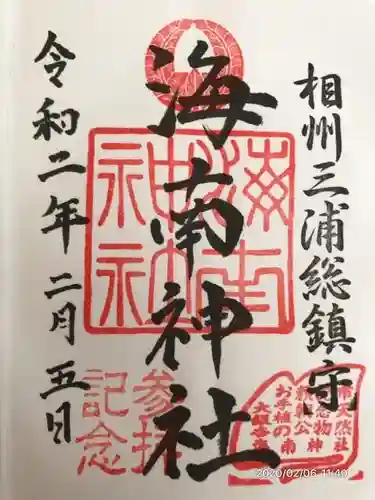 相州三浦総鎮守
海南神社
令和二年二月五日
海南
神社
参拝
記念
2020/02/06 11:40